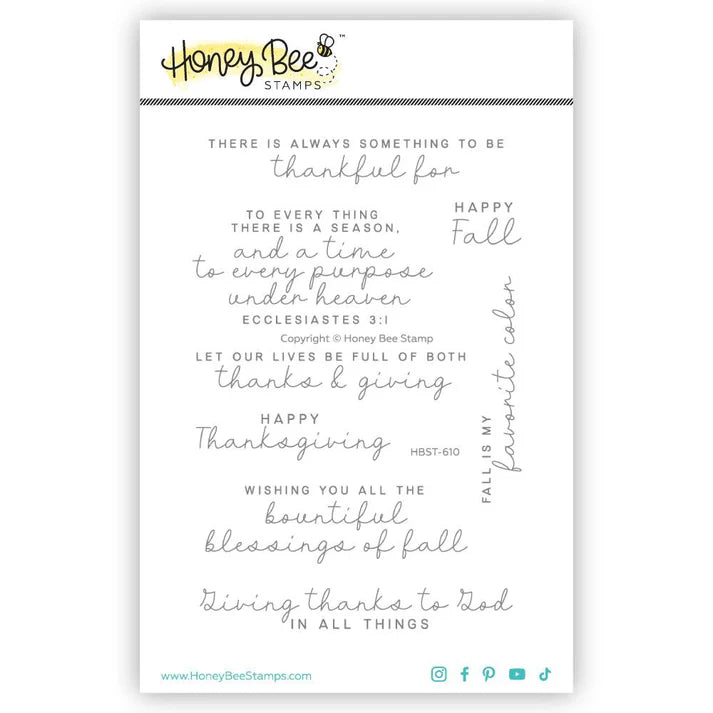 Honey Bee ™
STAMPS
THERE IS ALWAYS SOMETHING TO BE
thankful for
HAPPY
Fall
TO EVERY THING
THERE IS A SEASON,
and a time
to every purpose
under heaven
ECCLESIASTES 3:1
Copyright © Honey Bee Stamp
LET OUR LIVES BE FULL OF BOTH
thanks & giving
FALL IS MY
favorite color
HAPPY
Thanksgiving
HBST-610
WISHING YOU ALL THE
bountiful
blessings of fall
Giving thanks to God
IN ALL THINGS
www.HoneyBeeStamps.com